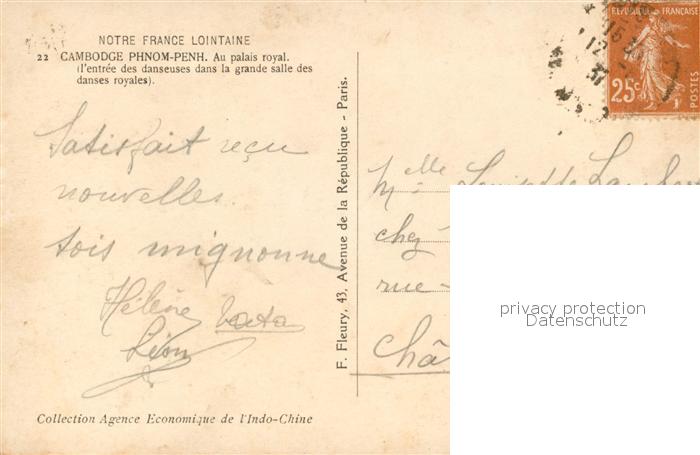 NOTRE FRANCE LOINTAINE
22 CAMBODGE PHNOM-PENH. Au palais royal.
(l'entrée des danseuses dans la grande salle des
danses royales).
Satisfait reçu
nouvelles.
sois mignonne
Hélène
Léon
Collection Agence Economique de l'Indo-Chine
F. Fleury, 43, Avenue de la République - Paris.
RÉPUBLIQUE FRANÇAISE
25c
POSTES
15
12
31
Mlle
chez
rue
Châ
privacy protection
Datenschutz